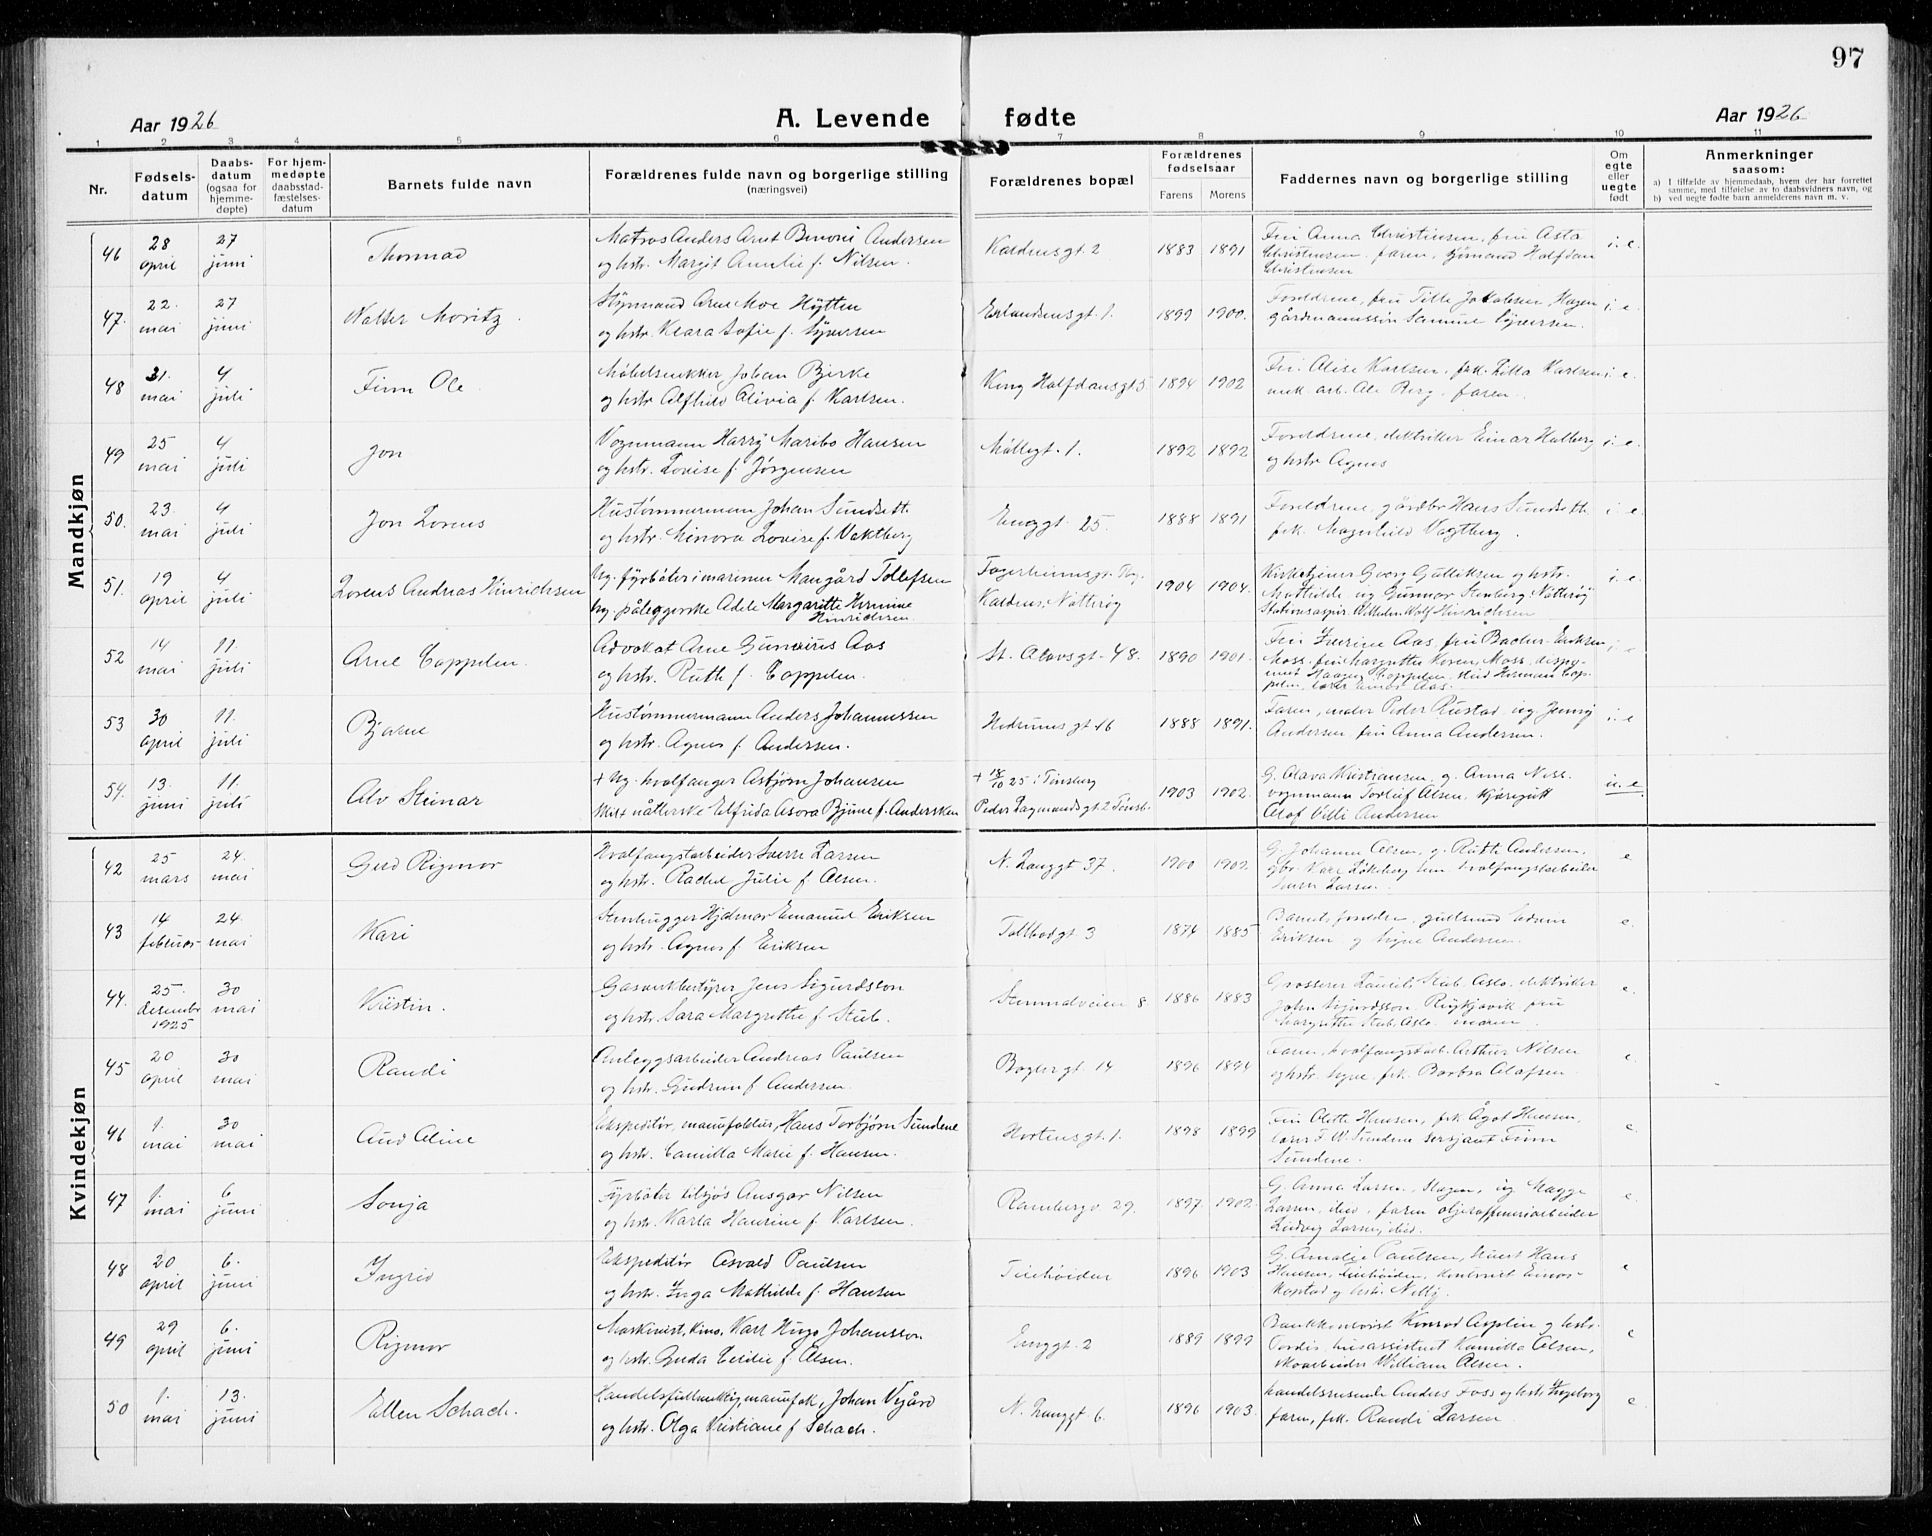 97
Aar 1926
A. Levende fødte
Aar 1926
1 2 3 4 5 6 7 8 9 10 11
Nr.
Fødselsdatum
Daabsdatum (ogsaa for hjemmedøpte)
For hjemmedøpte daabsstadfæstelsesdatum
Barnets fulde navn
Forældrenes fulde navn og borgerlige stilling (næringsvei)
Forældrenes bopæl
Forældrenes fødselsaar
Farens Morens
Faddernes navn og borgerlige stilling
Om egte eller uegte født
Anmerkninger saasom:
a) I tilfælde av hjemmedaab, hvem der har forrettet samme, med tilføielse av to daabsvidners navn, og
b) ved uegte fødte barn anmelderens navn m. v.
Mandkjøn
46 28 april 27 juni
Matros Anders Arnt Benoni Andersen
og hstr. Margit Amelie f. Nilsen.
Kaldnesgt. 2 1883 1891
Fru Anna Christensen, fru Asta
Christensen, faren, Halfdan
Christensen
47. 22. mai 27 juni Walter Moritz.
Styrmand Arne Moe Hytten
og hstr. Klara Sofie f. Syversen
Erlandsensgt. 1. 1899 1900. i. e.
Foreldrene, fru Tilla Jakobsen Hagen
gårdmannssøn Syversen.
48 31. mai 4 juli Finn Ole.
Møbelsnekker Johan Bjerke
og hstr Alfhild Olivia f. Karlsen.
Kong Halfdansgt 5 1894 1902 i. e.
Fru Alise Karlsen, frk. Karlsen
mek. arb. Ole Berg, faren.
49 25 mai 4 juli Jon
Vognmann Harry Maribo Hansen
og hstr. Lovise f. Jørgensen
Møllegt. 1. 1892 1892 i. e.
Foreldrene, elektriker Einar Halberg
og hstr Agnes
50. 23. mai 4 juli Jon Lorens
Hustømmermann Johan Sundseth
og hstr. Minora Lovise f. Vaktberg
Enggt. 25. 1888 1891 i. e.
Foreldrene, gårdbr Hans Sundseth
frk. Magnhild Vogtberg.
51. 19 april 4 juli Lorens Andreas Hinrichsen
Ug. fyrbøter i marinen Maugård Tollefsen
Ug. påleggerske Adele Margarithe Hermine
Hinrichsen.
Kaldnes, Nøtterøy 1904 1904.
Kirketjener Georg Gulliksen og hstr.
Mathilde, ug Gunnar Stenberg Nøtterøy
52 14 mai 11. juli Arne Coppelen.
Advokat Arne Aas
og hstr. Ruth f. Coppelen.
St. Olavsgt. 48. 1890 1901. i e
53 30 april 11. juli Bjarne
Hustømmermann Anders Johannessen
og hstr. Agnes f. Andersen.
Hedrumsgt 16 1888 1891. i. e
Faren, Peder Rustad, ug. Jenny
Andersen, fru Anna Andersen.
54. 13. juni 11. juli Alv Steinar
+ Ug. hvalfanger Asbjørn Johansen
nåtterske Elfrida Asora Bjune f. Andersken
+ 18/10 25 i Tønsberg
Peder Pagmandsgt. 2 Tønsb. 1903 1902. u. e.
G. Olava Kristiansen, g. Anna Ness.
vognmann Torleif Olsen, kjøregutt
Olaf Villi Andersen
Kvindekjøn
42 25 mars 24. mai Gerd Rigmor
Hvalfangstarbeider Sverre Larsen
og hstr. Rachel Julie f. Olsen.
N. Langgt 37. 1900 1902. e
G. Johanne Olsen, g. Ruth Andersen,
hvalfangstarbeider
Sverre Larsen.
43 14 februar 24. mai Kari
Stenhugger Hjalmar Emanuel Eriksen
og hstr. Agnes f. Eriksen
Tollbodgt 3 1874 1885 e
Barnets foreldre, gullsmed
Eriksen og Signe Andersen.
44. 25. desember 1925 30 mai Kristin.
Gasverkbestyrer Jens Sigurdsson
og hstr. Sara Margrethe f. Stub.
8 1886 1883 e.
Grosserer Stub, Oslo, elektriker
John Sigurdsson, Reykjavik fru
Margrethe Stub, Oslo, moren.
45 20 april 30 mai Randi
Anleggsarbeider Andreas Paulsen
og hstr. Gudrun f. Andersen.
Boglergt 14 1896 1894 e.
Faren, hvalfangstarb. Arthur Nilsen
og hstr. Signe, frk. Borbra Olafsen.
46 1. mai 30 mai Aud Aline
Ekspeditør, manufaktur, Hans Torbjørn Sundene
og hstr. Camilla Marie f. Hansen.
Hortensgt. 1. 1898 1899 e.
Fru Olette Hansen, frk Ågot Hansen,
lærer F. W. Sundene sersjant Finn
Sundene.
47 1. mai 6 juni Sonja
Fyrbøter tilsjøs Ansgar Nilsen
og hstr. Karla Henrine f. Karlsen.
Rambergv. 29. 1897. 1902. e.
G. Anna Larsen, Hagen, ug Magge
Larsen, ibid, faren, oljeraffineriarbeider
Ludvig Larsen, ibid.
48 20 april 6. juni Ingrid
Ekspeditør Osvald Paulsen
og hstr. Inga Mathilde f. Hansen
Teiehøiden 1896 1903 e
G. Amalie Paulsen, Hans
Hansen, Teiehøiden, kontorist Einar
Kopstad og hstr. Nelly.
49 29 april 6. juni Rigmor
Maskinist, kino, Karl Hugo Johansson
og hstr. Guda Cecilie f. Olsen.
Enggt. 2 1889 1899 e
Bankkontorist Konrad Aspelin og hstr.
Tordis, husassistent Kamilla Olsen,
Skoarbeider William Olsen.
50 1. mai 13. juni Ellen Schach.
Handelsfullmektig, manufak, Johan Vegård
og hstr. Olga Kristiane f Schach.
N. Langgt. 6. 1896 1903. e.
Handelsreisende Anders Foss og hstr Ingeborg
faren, frk. Randi Larsen